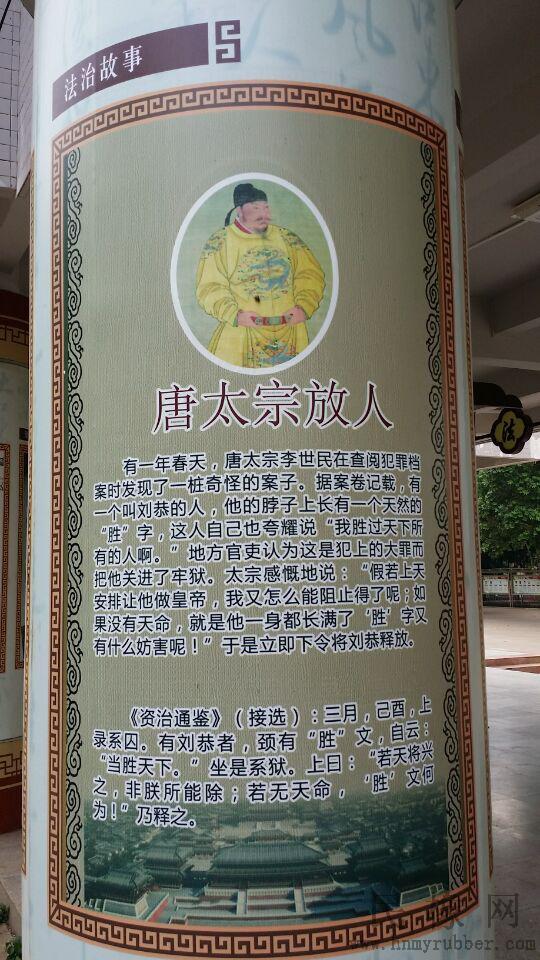 法治故事
唐太宗放人
有一年春天，唐太宗李世民在查阅犯罪档
案时发现了一桩奇怪的案子。据案卷记载，有
一个叫刘恭的人，他的脖子上长有一个天然的
“胜”字，这人自己也夸耀说“我胜过天下所
有的人啊。”地方官吏认为这是犯上的大罪而
把他关进了牢狱。太宗感慨地说：“假若上天
安排让他做皇帝，我又怎么能阻止得了呢；如
果没有天命，就是他一身都长满了‘胜’字又
有什么妨害呢！”于是立即下令将刘恭释放。
《资治通鉴》（接选）：三月，己酉，上
录系囚。有刘恭者，颈有“胜”文，自云：
“当胜天下。”坐是系狱。上曰：“若天将兴
之，非朕所能除；若无天命，‘胜’文何
为！”乃释之。
法
网
www.hnmyrubber.com